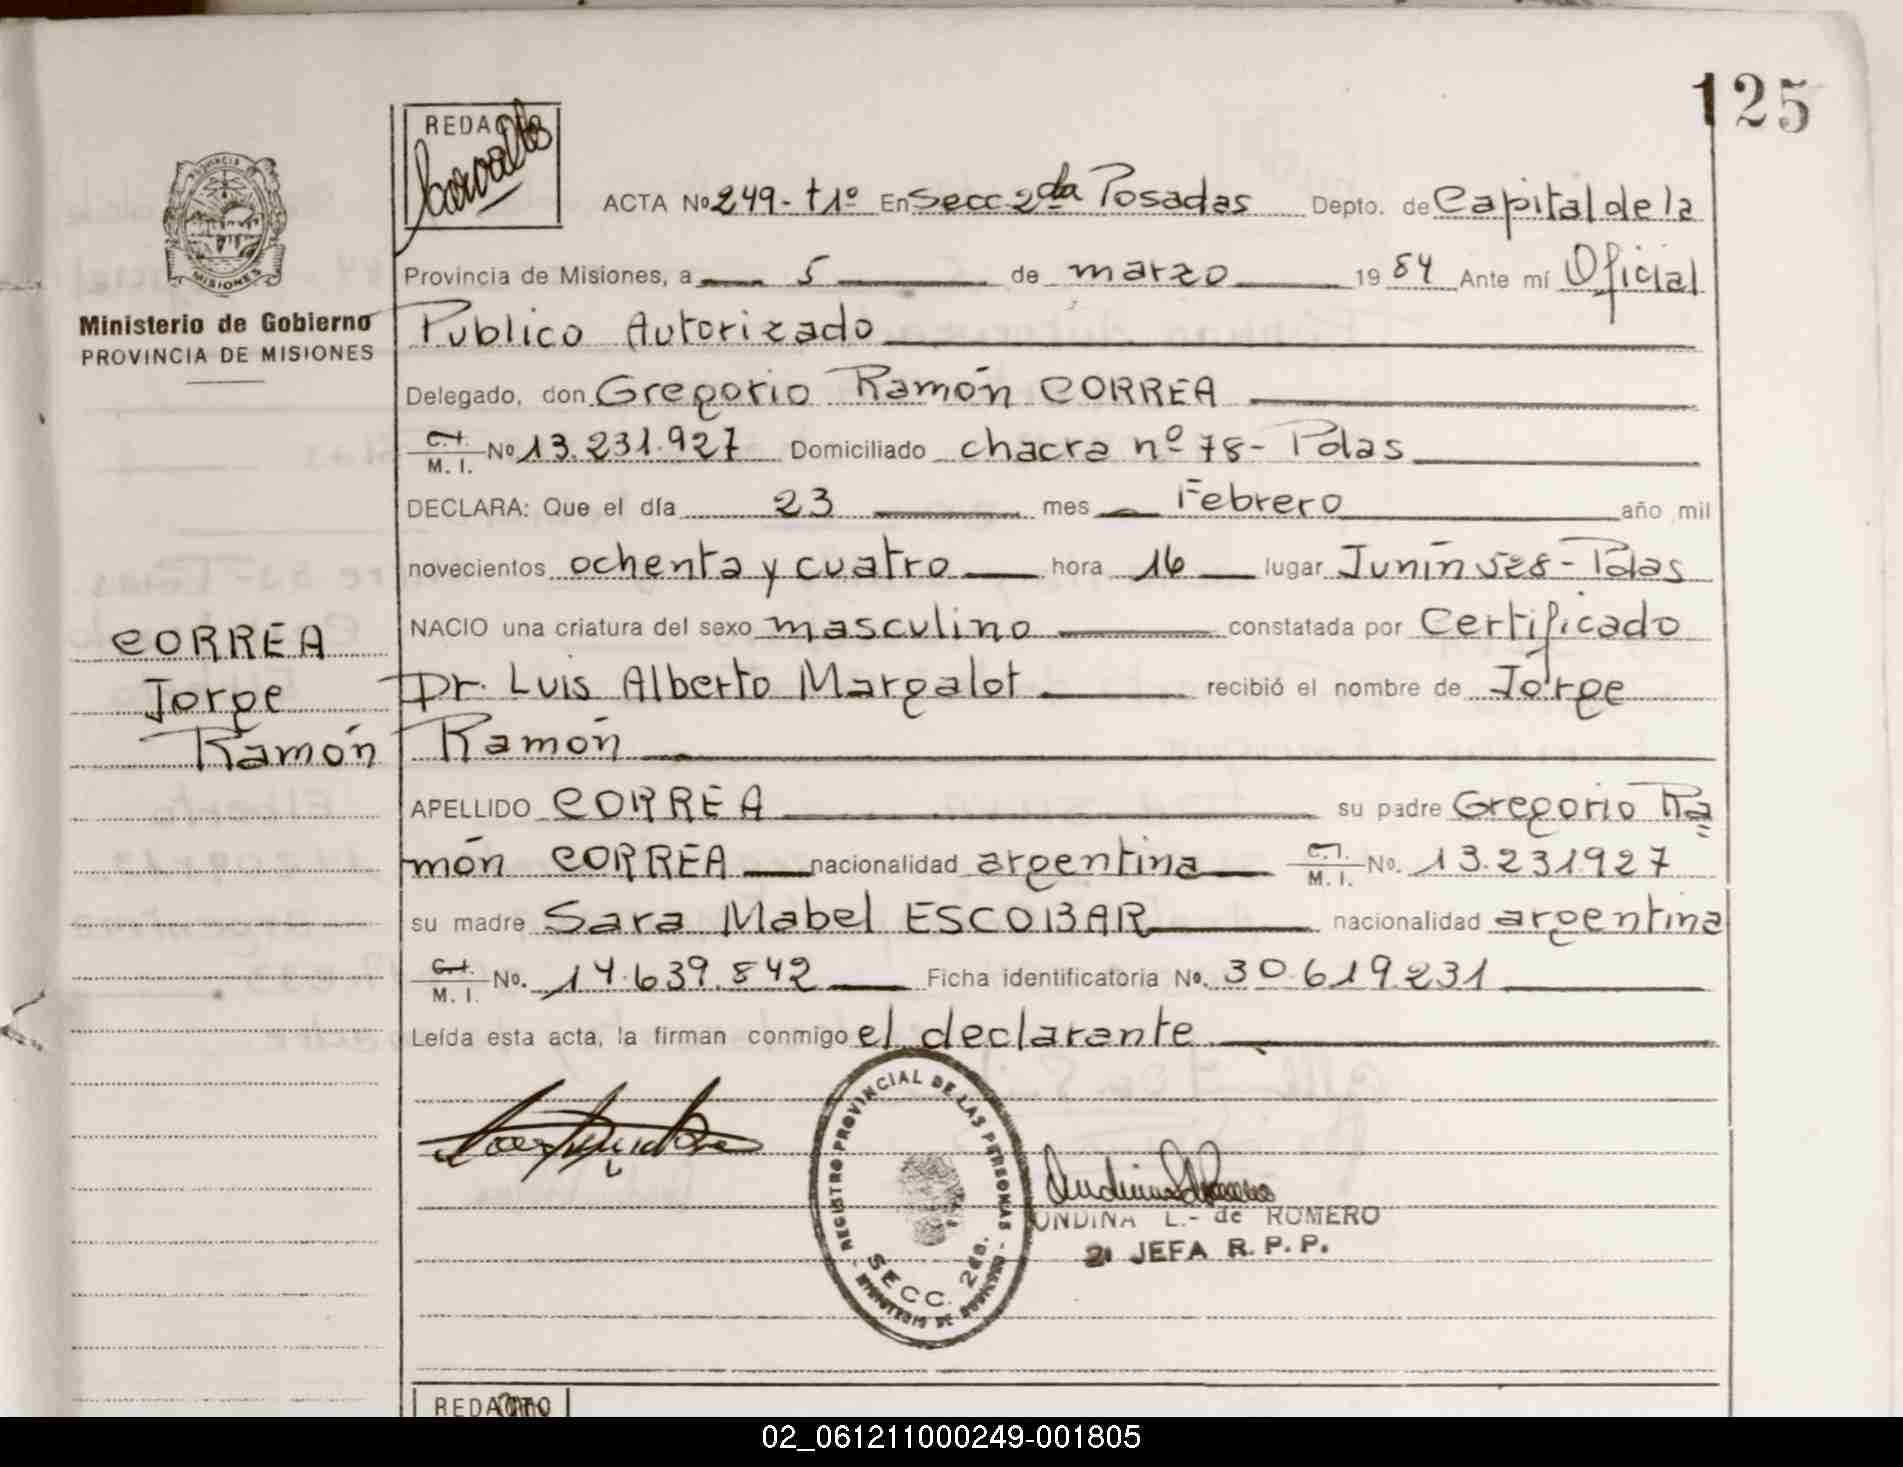 125
REDACTO
ACTA Nº 249 - t 1º En Secc 2da Posadas Depto. de Capital de la
Provincia de Misiones, a 5 de marzo 19 84 Ante mí Oficial
Publico Autorizado
Delegado, don Gregorio Ramón CORREA
C.I. M. I. Nº 13.231.927 Domiciliado chacra nº 78 - Pdas
DECLARA: Que el día 23 mes Febrero año mil
novecientos ochenta y cuatro hora 16 lugar Junín 528 - Pdas
NACIO una criatura del sexo masculino constatada por Certificado
Dr. Luis Alberto Margalot recibió el nombre de Jorge
Ramón
APELLIDO CORREA su padre Gregorio Ra=
món CORREA nacionalidad argentina C.I. M. I. No. 13.231.927
su madre Sara Mabel ESCOBAR nacionalidad argentina
C.I. M. I. No. 14.639.842 Ficha identificatoria No. 30.619.231
Leída esta acta, la firman conmigo el declarante
PROVINCIA DE MISIONES
Ministerio de Gobierno
PROVINCIA DE MISIONES
CORREA
Jorge
Ramón
REGISTRO PROVINCIAL DE LAS PERSONAS
SECC. 2da.
MINISTERIO DE GOBIERNO
UNDINA L.- de ROMERO
JEFA R. P. P.
REDACTO
02_061211000249-001805